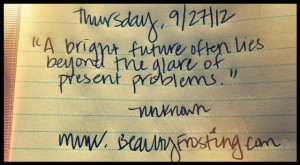 Thursday, 9/27/12
"A bright future often lies
beyond the glare of
present problems."
-unknown
www.BeautyFrosting.com